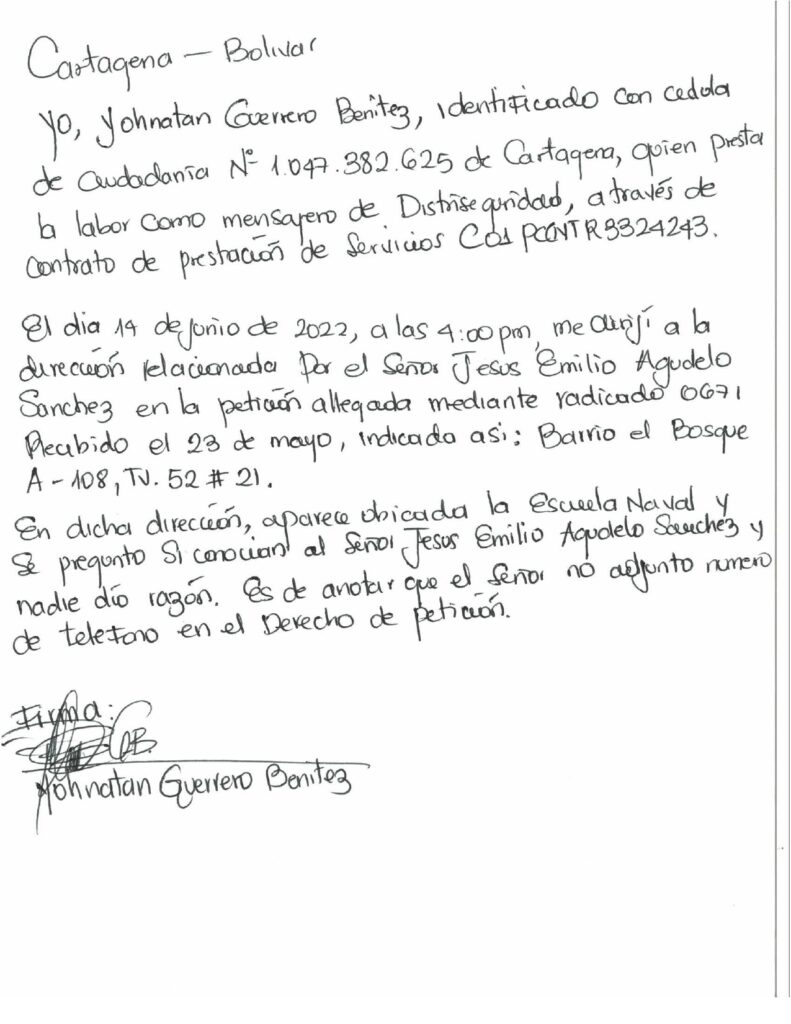 Cartagena – Bolivar
Yo, Yohnatan Guerrero Benitez, identificado con cedula
de Ciudadanía N° 1.047.382.625 de Cartagena, quien presta
la labor como mensajero de Distriseguridad, a través de
contrato de prestación de Servicios CO1 PCCNTR3324243.
El dia 14 de junio de 2022, a las 4:00 pm, me dirijí a la
dirección relacionada por el Señor Jesus Emilio Agudelo
Sanchez en la petición allegada mediante radicado 0671
Recibido el 23 de mayo, indicada asi: Barrio el Bosque
A - 108, TV. 52 # 21.
En dicha dirección, aparece ubicada la Escuela Naval y
se pregunto si conocian al Señor Jesus Emilio Agudelo Sanchez y
nadie dío razón. Es de anotar que el Señor no adjunto numero
de telefono en el Derecho de petición.
Firma:
Yohnatan Guerrero Benitez